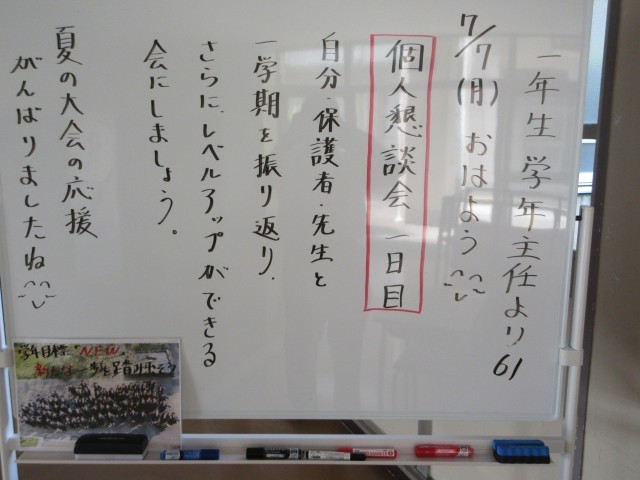 一年生 学年主任より 61
7/7(月) おはよう
個人懇談会 一日目
自分・保護者・先生と
一学期を振り返り、
さらに、レベルアップができる
会にしましょう。
夏の大会の応援
がんばりましたね
学年目標「NEW」